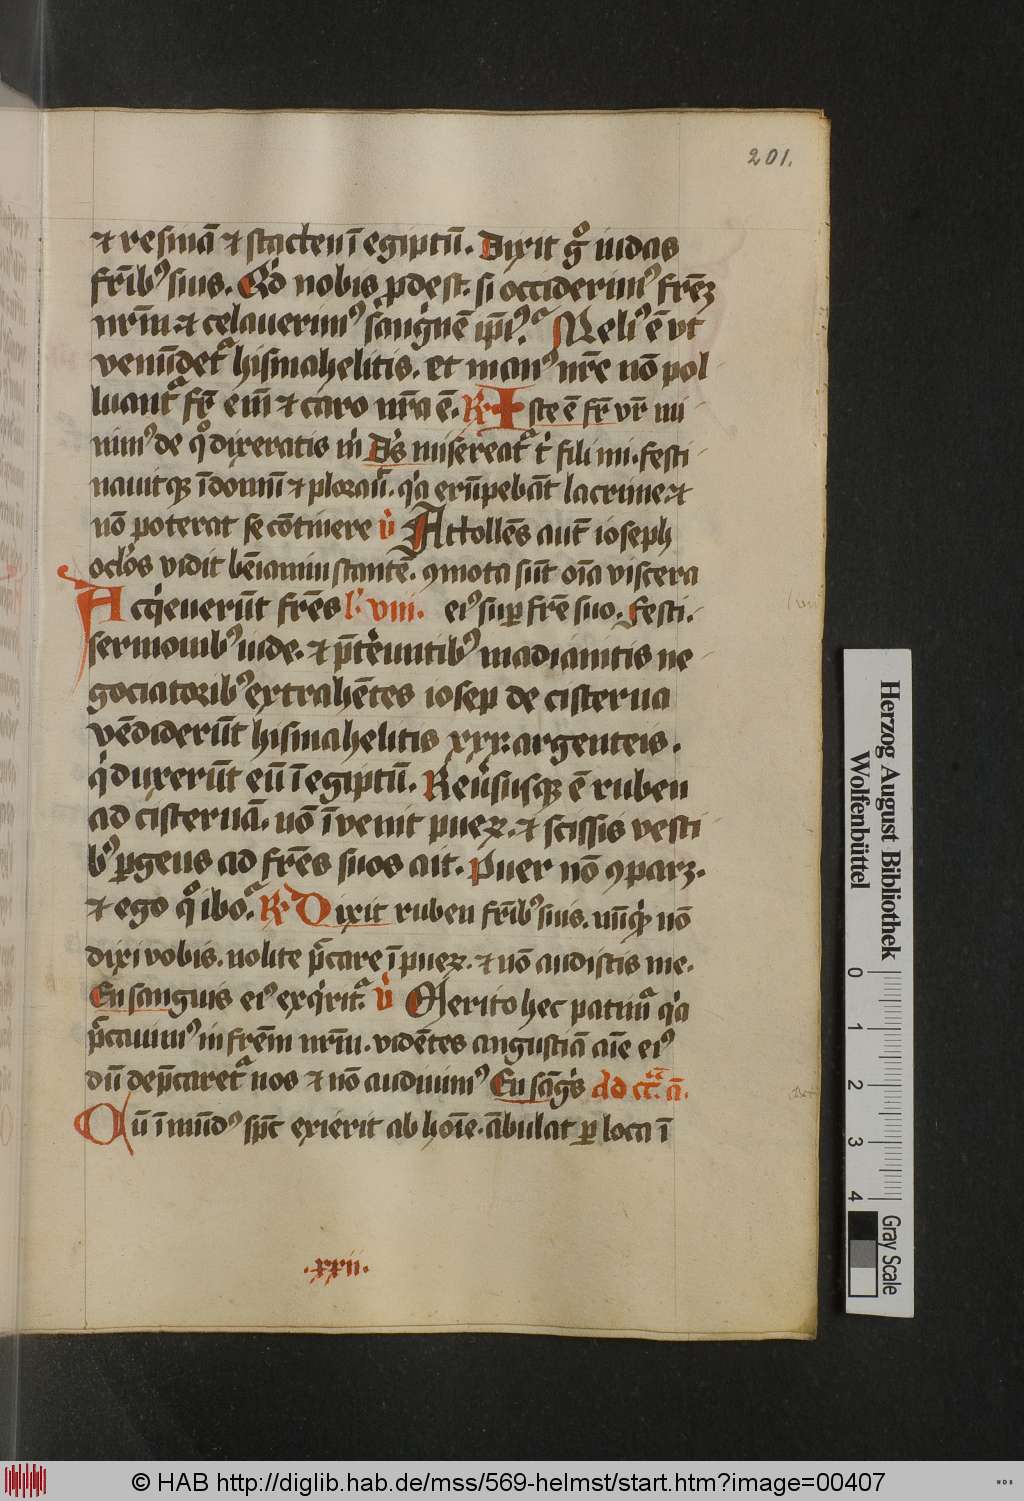 201.
⁊ resinā ⁊ stacten ī egiptū. Dixit gͦ iudas
fr̄ib⁹ suis. Qd̓ nobis ꝓdest. si occiderim⁹ frēꝫ
nr̄m ⁊ celauerim⁹ sāgͥnē ip̄i⁹. Meli⁹ ē vt
venūdet᷑ hismahelitis. et man⁹ nr̄e nō pol
luant᷑ fr̄ em̄ ⁊ caro nr̄a ē. R Iste ē fr̄ vr̄ mi
nim⁹ de qͦ dixeratis m̄ Ds̓ misereat᷑ tͥ fili mi. festi
nauitqꝫ ī domū ⁊ plorauͥ. qͥa erūpebāt lacrime ⁊
nō poterat se cōtinere v̓ Attollēs aut̄ ioseph
oclo̓s vidit bēiamin stantē. ꝯmota sūt oīa viscera
Acqͥeuerūt frēs l̓. viii. ei⁹ suꝑ frē suo. Festi.
sermonib⁹ iude. ⁊ p̄tereūtib⁹ madianitis ne
gociatorib⁹ extrahētes iosep de cisterna
vēdiderūt hismahelitis xxx. argenteis.
qͥ duxerūt eū ī egiptū. Reūsusqꝫ ē ruben
ad cisternā. nō īvenit pueꝝ. ⁊ scissis vesti
b⁹ ꝑgens ad frēs suos ait. Puer nō ꝯparꝫ.
⁊ ego qͦ ibo. R Dixit ruben fr̄ib⁹ suis. nūqͥd nō
dixi vobis. nolite p̄ccare ī pueꝝ. ⁊ nō audistis me.
En sanguis ei⁹ exqͥrit᷑. v̓ Merito hec patim᷑ qͥa
p̄ccauim⁹ in frēm nr̄m. vidētes angustiā aīe ei⁹
dū dep̄caret᷑ nos ⁊ nō audiuim⁹ En sāgͥs ad cc̄a. ā.
Cū īmūd⁹ sp̄c exierit ab hoīe. ābulat ꝑ loca ī
.xxii.
Herzog August Bibliothek
Wolfenbüttel
0 1 2 3 4
Gray Scale
© HAB http://diglib.hab.de/mss/569-helmst/start.htm?image=00407